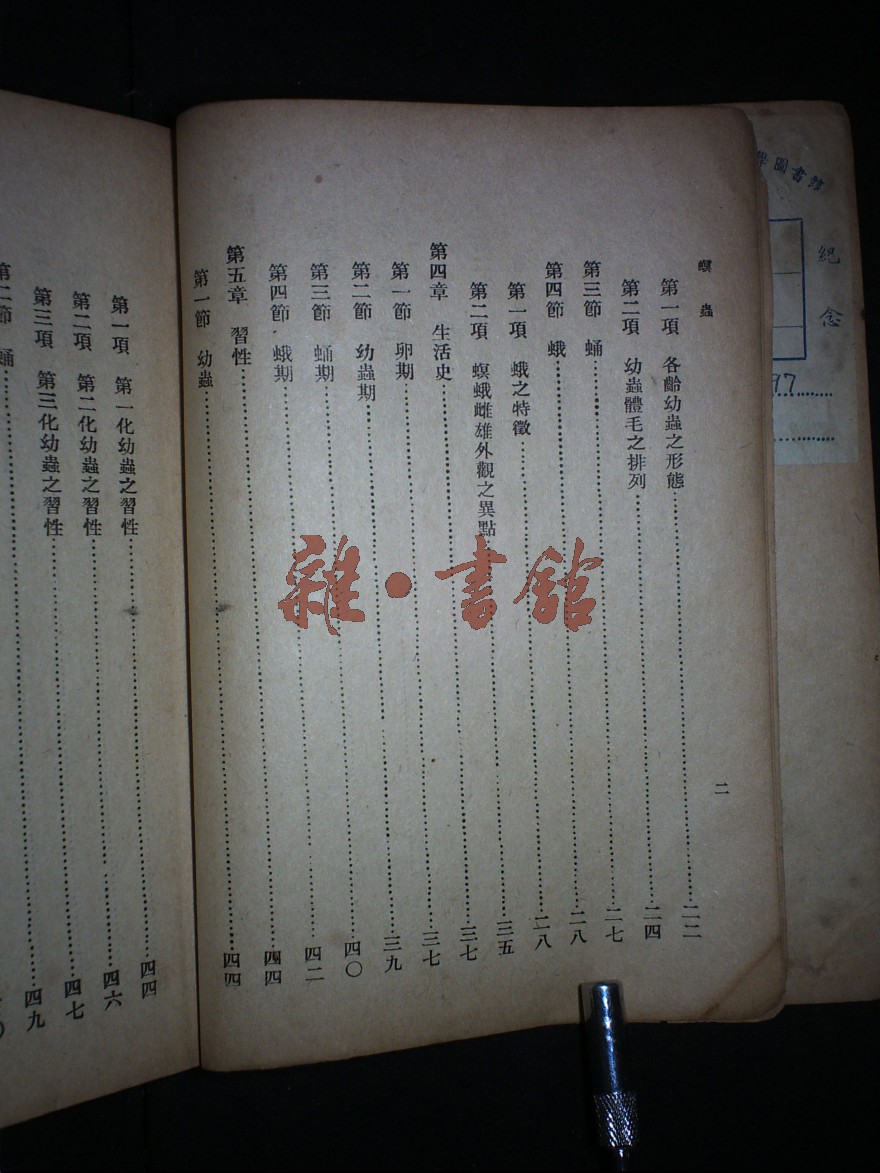 學圖書館
紀念
97
螟蟲
二
第一項 各齡幼蟲之形態……二二
第二項 幼蟲體毛之排列……二四
第三節 蛹……二七
第四節 蛾……二八
第一項 蛾之特徵……二八
第二項 螟蛾雌雄外觀之異點……三五
第四章 生活史……三七
第一節 卵期……三七
第二節 幼蟲期……三九
第三節 蛹期……四〇
第四節 蛾期……四二
第五章 習性……四四
第一節 幼蟲……四四
第一項 第一化幼蟲之習性……四四
第二項 第二化幼蟲之習性……四六
第三項 第三化幼蟲之習性……四七
第二節 蛹……四九
雜·書館